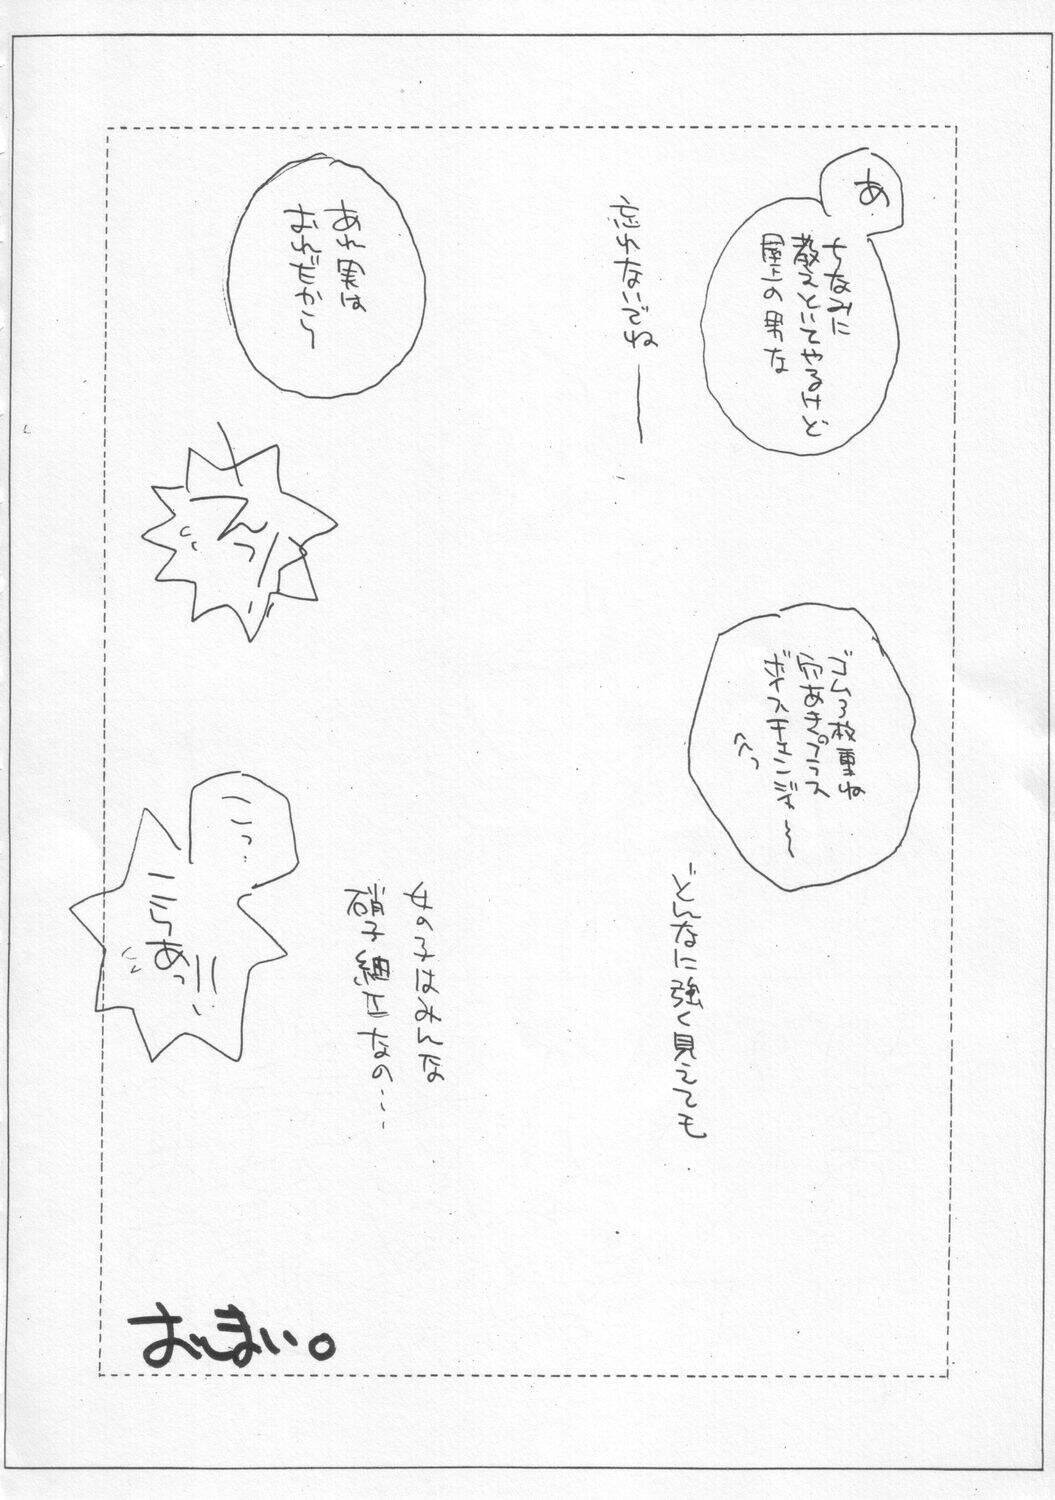 あ
ちなみに
教えといてやるけど
屋上の男な
忘れないでね——
あれ実は
おれだから〜
えっ
ゴム3枚重ね
穴あき。プラス
ボイスチェンジャ〜〜
へへっ
どんなに強く見えても
女の子はみんな
硝子細工なの…
こっ…
こらあっ
おしまい。